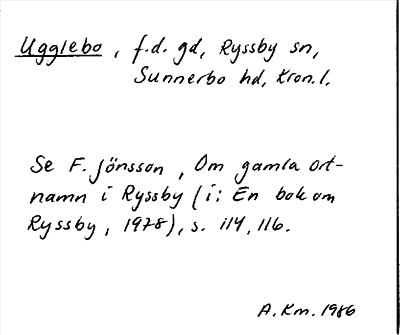 Ugglebo, f.d. gd, Ryssby sn,
Sunnerbo hd, Kron.l.
Se F. Jönsson, Om gamla ort-
namn i Ryssby (i: En bok om
Ryssby, 1978), s. 114, 116.
A.Km. 1986